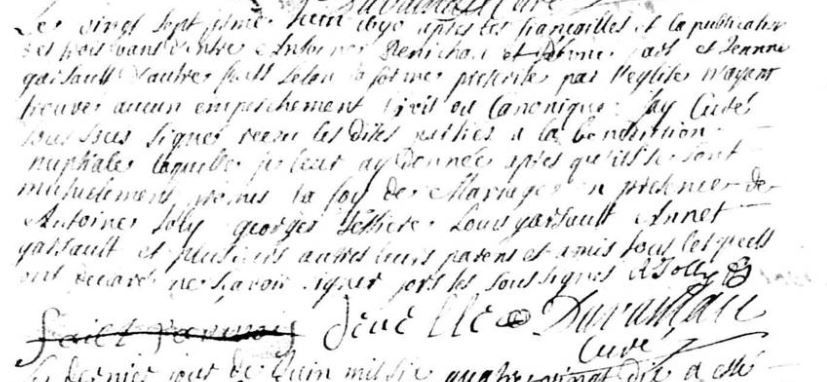 Duranthau Curé
Le vingt sept juin 1690 apres les fiançailles et la publication
des trois bans entre Antoine Penichou et d'une part et Jeanne
garsault d'autre part selon la forme prescrite par l'eglise n'ayent
trouve aucun empeschement Civil ou Canonique Jay Curé
sous signé receu les dites parties a la benediction
nuptiale laquelle je leur ay donnée apres qu'ils se sont
mutuelement promis la foy de Mariage en presence de
Antoine Joly georges Louis garsault Annet
garsault et plusieurs autres leurs parens et amis tous lesquels
ont declaré ne sçavoir signer fors les soussignes AJolly
faict par moy
Curé
le dernier jour de Juin mil six quatre vingt dix a esté